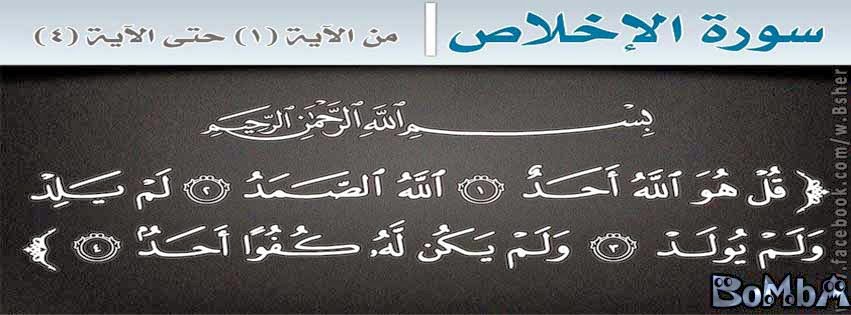 سورة الإخلاص | من الآية (١) حتى الآية (٤)
بِسْمِ ٱللَّهِ ٱلرَّحْمَٰنِ ٱلرَّحِيمِ
﴿ قُلْ هُوَ ٱللَّهُ أَحَدٌ ١ ٱللَّهُ ٱلصَّمَدُ ٢ لَمْ يَلِدْ
وَلَمْ يُولَدْ ٣ وَلَمْ يَكُن لَّهُۥ كُفُوًا أَحَدٌۢ ٤ ﴾
www.facebook.com/w.Bsher
BoMbA